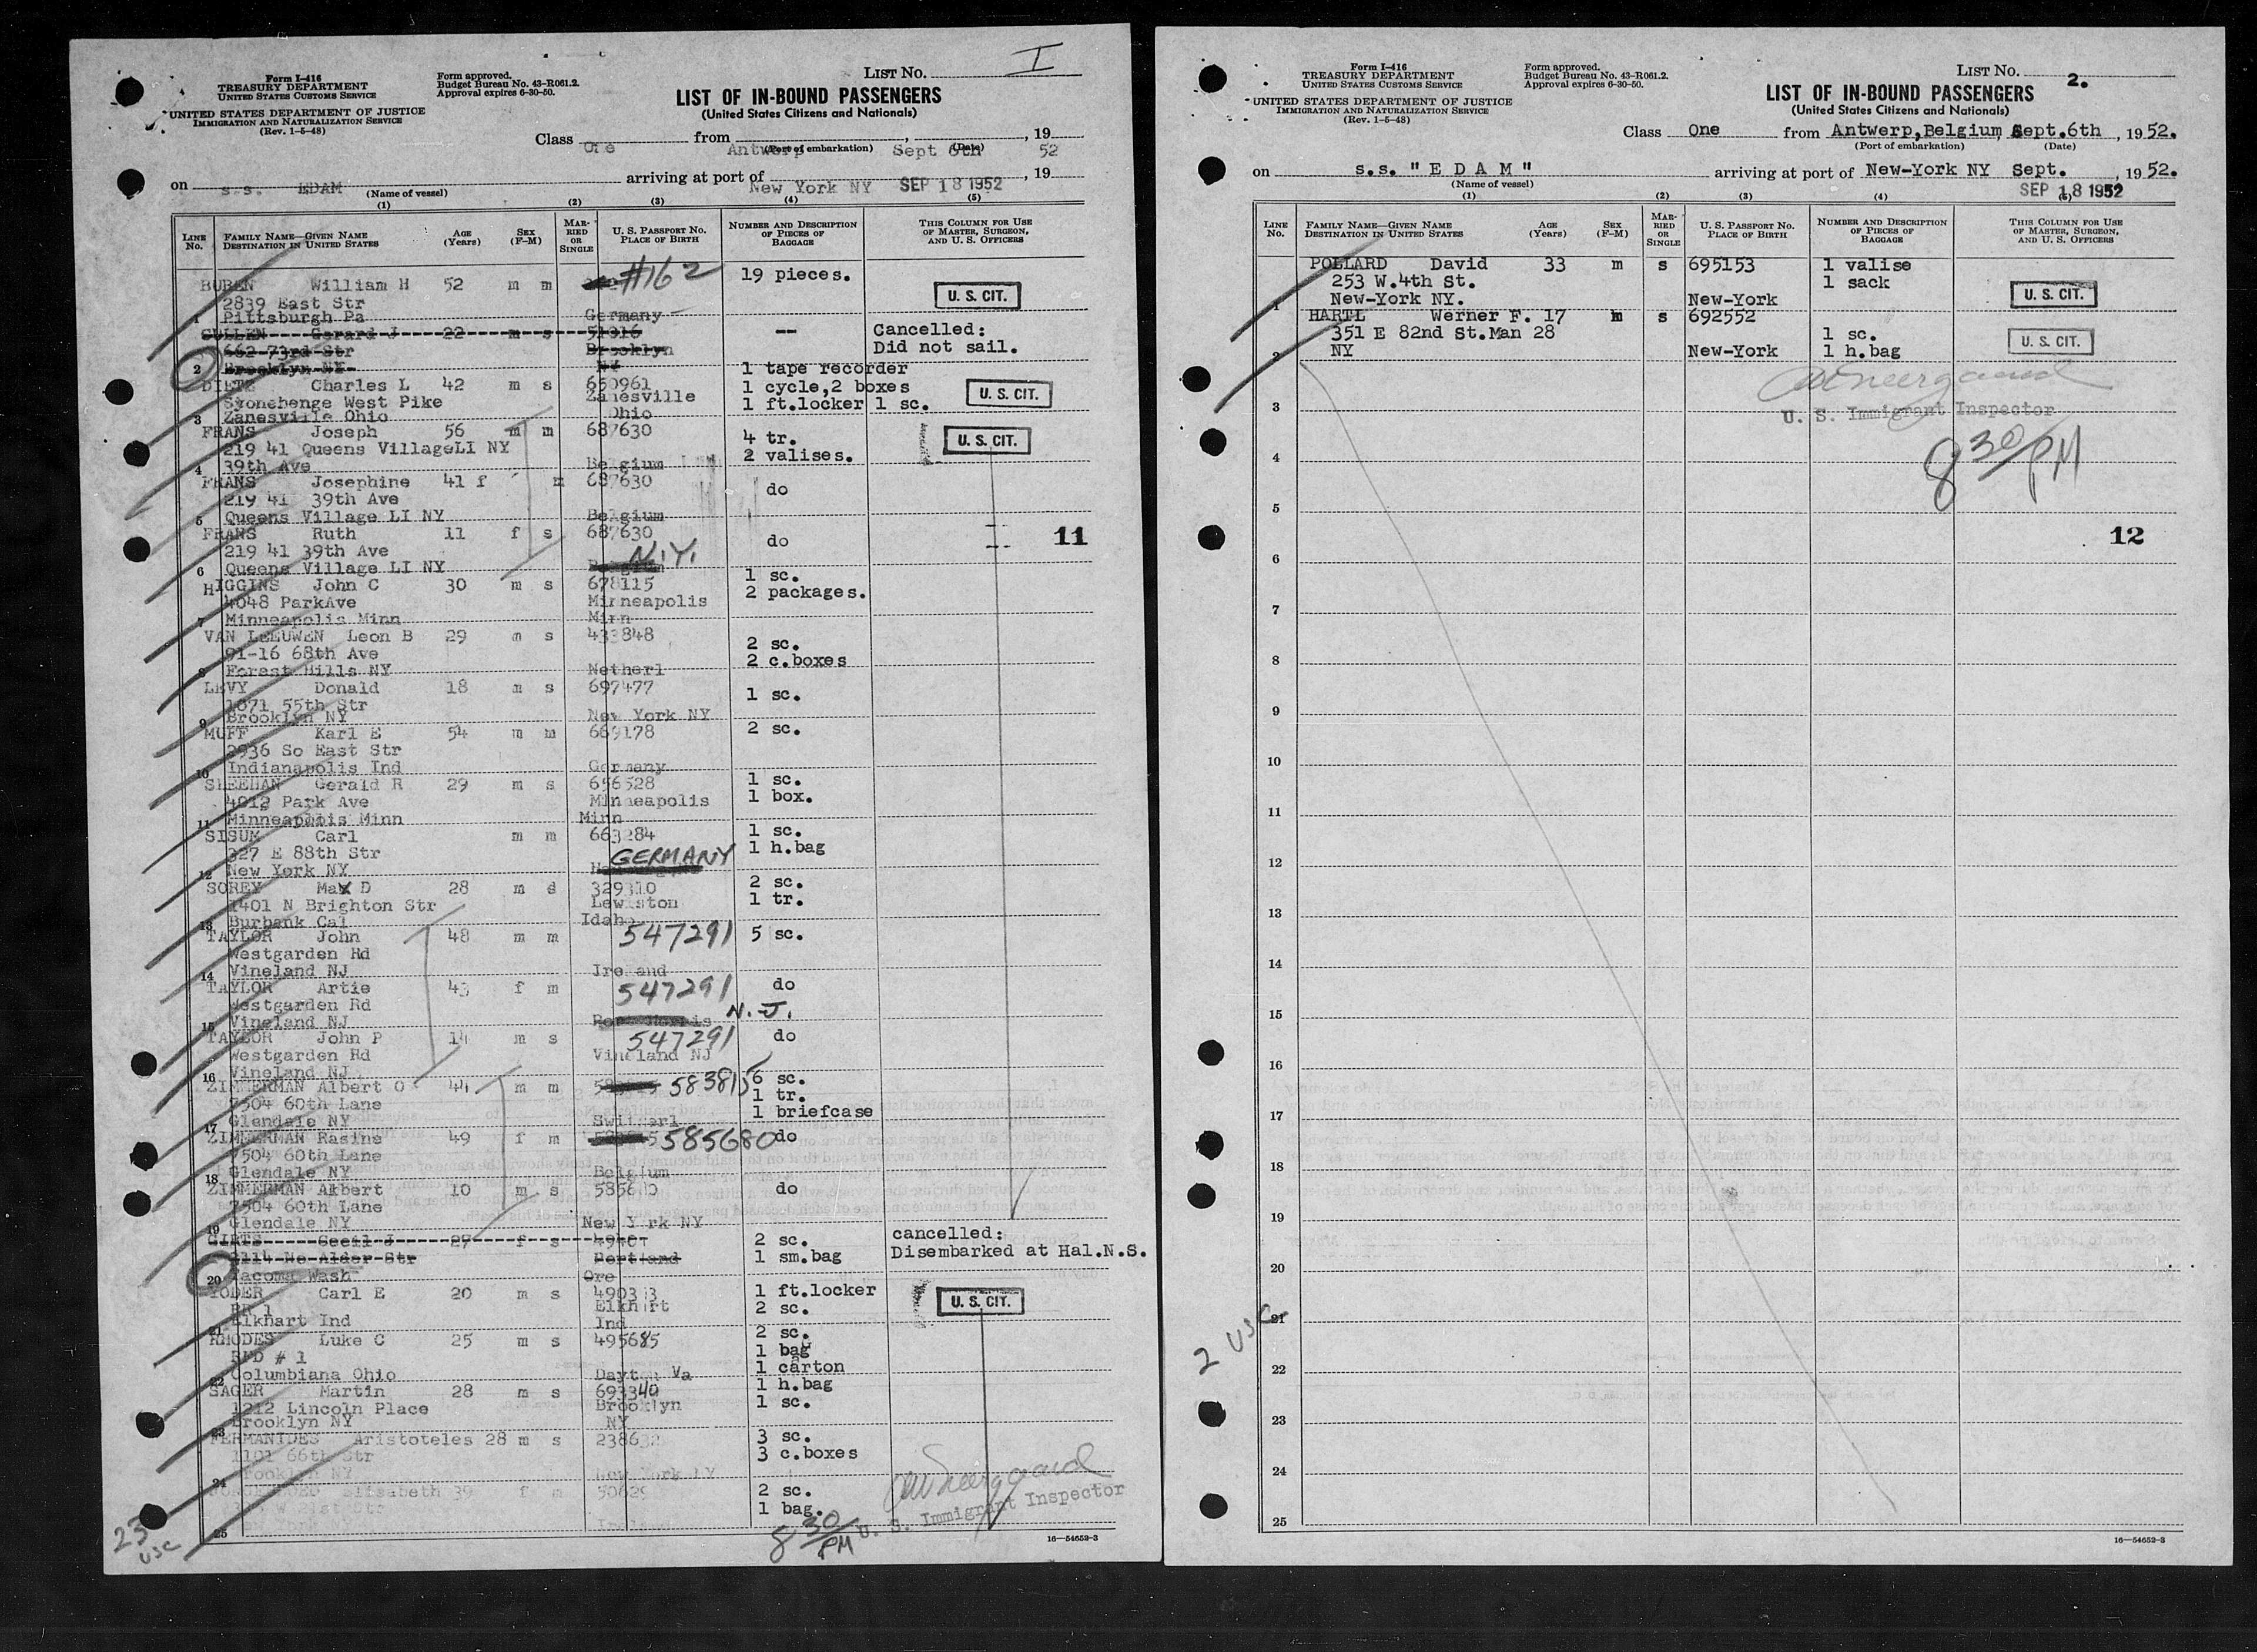 Form I-416
TREASURY DEPARTMENT
UNITED STATES CUSTOMS SERVICE
UNITED STATES DEPARTMENT OF JUSTICE
IMMIGRATION AND NATURALIZATION SERVICE
(Rev. 1-5-48)
Form approved.
Budget Bureau No. 43-R061.2.
Approval expires 6-30-50.
LIST NO. I
LIST OF IN-BOUND PASSENGERS
(United States Citizens and Nationals)
Class One from Antwerp, Sept 6th, 19 52
(Port of embarkation) (Date)
on s.s. EDAM arriving at port of New York NY SEP 18 1952, 19
(Name of vessel)
(1) (2) (3) (4) (5)
LINE No. FAMILY NAME—GIVEN NAME DESTINATION IN UNITED STATES AGE (Years) SEX (F-M) MARRIED OR SINGLE U. S. PASSPORT NO. PLACE OF BIRTH NUMBER AND DESCRIPTION OF PIECES OF BAGGAGE THIS COLUMN FOR USE OF MASTER, SURGEON, AND U. S. OFFICERS
BUBEN William H 52 m m #162 19 pieces.
2839 East Str U. S. CIT.
1 Pittsburgh Pa Germany
CULLEN Gerard J 22 m s 51816 -- Cancelled:
662 73rd Str Brooklyn Did not sail.
2 Brooklyn NY NY
DIETZ Charles L 42 m s 650961 1 tape recorder
Stonehenge West Pike Zanesville 1 cycle,2 boxes U. S. CIT.
3 Zanesville Ohio Ohio 1 ft.locker 1 sc.
FRANS Joseph 56 m m 687630 4 tr. U. S. CIT.
219 41 Queens VillageLI NY 2 valises.
4 39th Ave Belgium
FRANS Josephine 41 f m 687630 do
219 41 39th Ave
5 Queens Village LI NY Belgium
FRANS Ruth 11 f s 687630 do 11
219 41 39th Ave N.Y.
6 Queens Village LI NY Belgium
HIGGINS John C 30 m s 678115 1 sc.
4048 ParkAve Minneapolis 2 packages.
7 Minneapolis Minn Minn
VAN LEEUWEN Leon B 29 m s 433848 2 sc.
91-16 68th Ave 2 c.boxes
8 Forest Hills NY Netherl
LEVY Donald 18 m s 697477 1 sc.
1671 55th Str
9 Brooklyn NY New York NY
MUFF Karl E 54 m m 669178 2 sc.
2936 So East Str
10 Indianapolis Ind Germany
SHEEHAN Gerald R 29 m s 656528 1 sc.
4012 Park Ave Minneapolis 1 box.
11 Minneapolis Minn Minn
SISUM Carl m m 663284 1 sc.
327 E 88th Str GERMANY 1 h.bag
12 New York NY
SOREY Max D 28 m d 329310 2 sc.
1401 N Brighton Str Lewiston 1 tr.
13 Burbank Cal Idaho
TAYLOR John 48 m m 547291 5 sc.
Westgarden Rd
14 Vineland NJ Ireland
TAYLOR Artie 43 f m 547291 do
Westgarden Rd
15 Vineland NJ N.J.
TAYLOR John P 14 m s 547291 do
Westgarden Rd Vineland NJ
16 Vineland NJ
ZIMMERMAN Albert O 44 m m 583815 6 sc.
7504 60th Lane 1 tr.
17 Glendale NY Switzerl 1 briefcase
ZIMMERMAN Rasine 49 f m 585680 do
7504 60th Lane
18 Glendale NY Belgium
ZIMMERMAN Albert 10 m s do
7504 60th Lane
19 Glendale NY New York NY
GIRTS Cecil J 27 f s 2 sc. cancelled:
2114 No Alder Str Portland 1 sm.bag Disembarked at Hal.N.S.
20 Tacoma Wash Ore
YODER Carl E 20 m s 1 ft.locker
RR 1 Elkhart 2 sc. U. S. CIT.
21 Elkhart Ind Ind
RHODES Luke C 25 m s 495685 2 sc.
RFD # 1 1 bag
22 Columbiana Ohio Dayton Va 1 carton
SAGER Martin 28 m s 693340 1 h.bag
1212 Lincoln Place Brooklyn 1 sc.
23 Brooklyn NY NY
FERMANIDES Aristoteles 28 m s 3 sc.
1101 66th Str 3 c.boxes
24 Brooklyn NY New York NY
Elisabeth 39 f m 2 sc.
1 bag.
25 Ireland
U. S. Immigrant Inspector
8 30/PM
23 USC
16—54652-3
Form I-416
TREASURY DEPARTMENT
UNITED STATES CUSTOMS SERVICE
UNITED STATES DEPARTMENT OF JUSTICE
IMMIGRATION AND NATURALIZATION SERVICE
(Rev. 1-5-48)
Form approved.
Budget Bureau No. 43-R061.2.
Approval expires 6-30-50.
LIST NO. 2.
LIST OF IN-BOUND PASSENGERS
(United States Citizens and Nationals)
Class One from Antwerp,Belgium, Sept.6th, 19 52.
(Port of embarkation) (Date)
on s.s. "E D A M" arriving at port of New-York NY Sept. , 19 52.
(Name of vessel) SEP 18 1952
(1) (2) (3) (4) (5)
LINE No. FAMILY NAME—GIVEN NAME DESTINATION IN UNITED STATES AGE (Years) SEX (F-M) MARRIED OR SINGLE U. S. PASSPORT NO. PLACE OF BIRTH NUMBER AND DESCRIPTION OF PIECES OF BAGGAGE THIS COLUMN FOR USE OF MASTER, SURGEON, AND U. S. OFFICERS
POLLARD David 33 m s 695153 1 valise
253 W.4th St. 1 sack U. S. CIT.
1 New-York NY. New-York
HARTL Werner F. 17 m s 692552
351 E 82nd St.Man 28 1 sc. U. S. CIT.
2 NY New-York 1 h.bag
3
U. S. Immigrant Inspector
4
8 30/PM
5
12
6
7
8
9
10
11
12
13
14
15
16
17
18
19
20
21
2 USC
22
23
24
25
16—54652-3